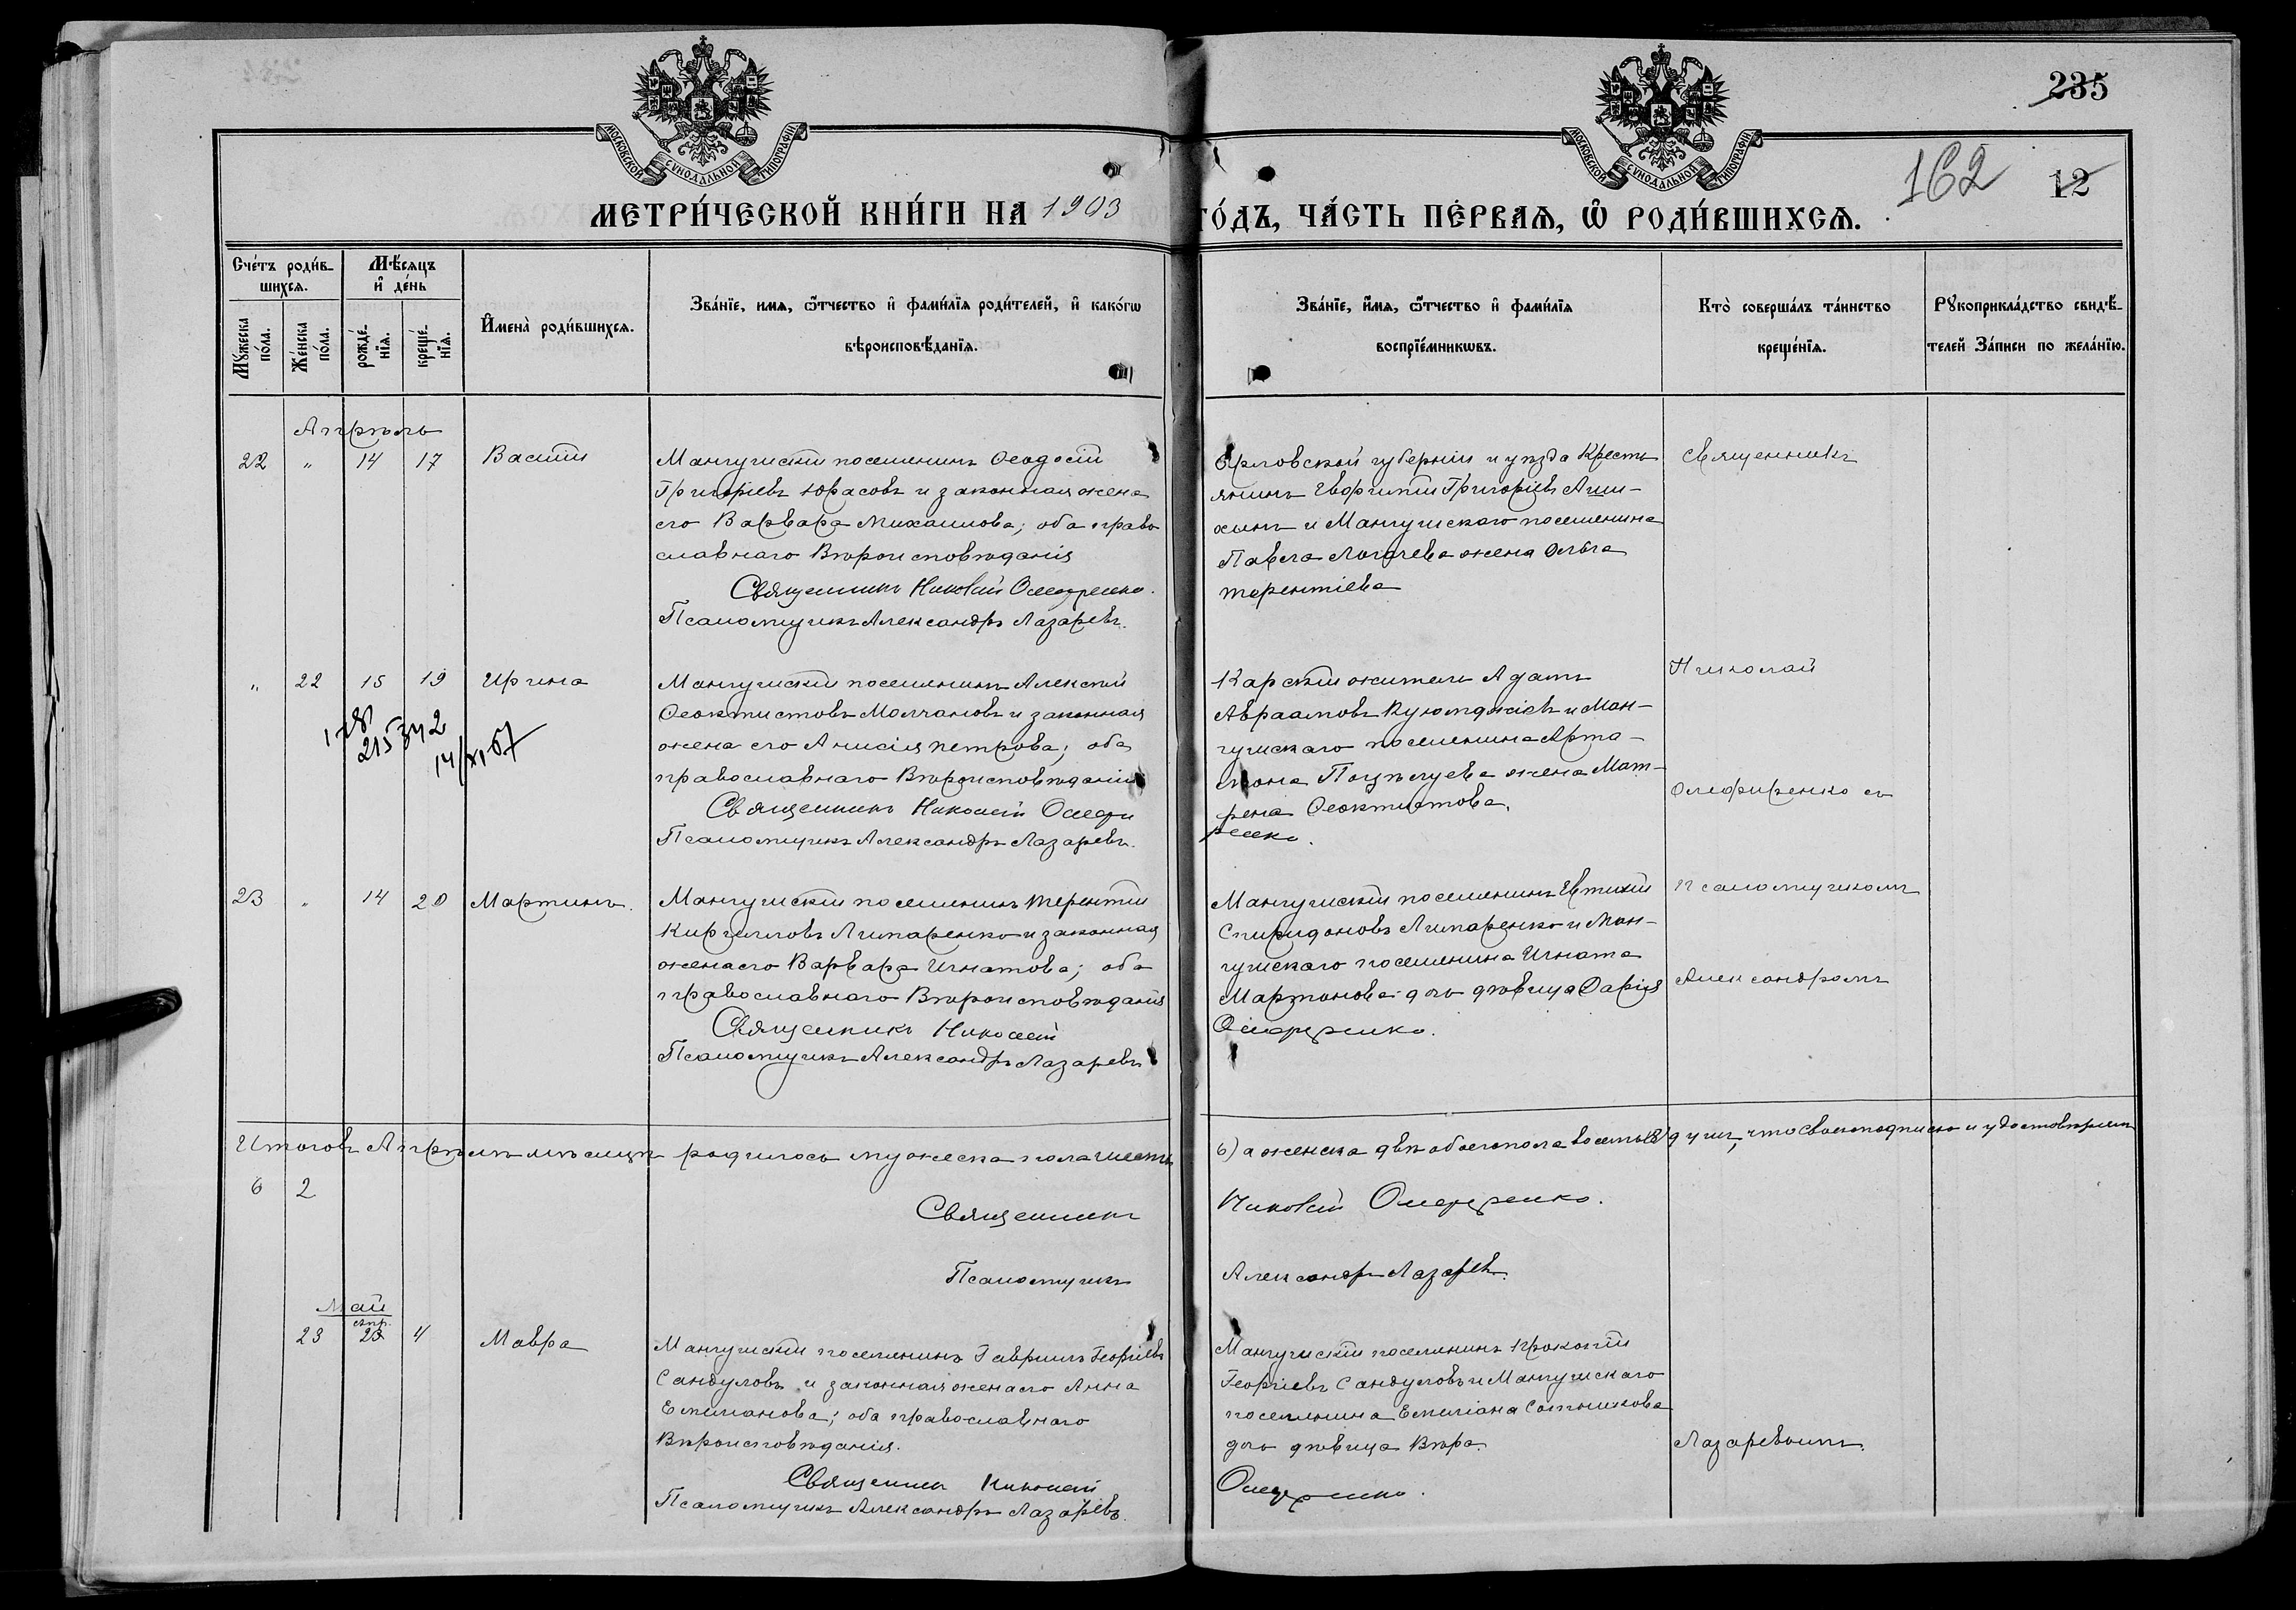 МОСКОВСКОЙ СѴНОДАЛЬНОЙ ТИПОГРАФІИ
МОСКОВСКОЙ СѴНОДАЛЬНОЙ ТИПОГРАФІИ
235
162
12
МЕТРИ́ЧЕСКОЙ КНИ́ГИ НА 1903
ГО́ДЪ, ЧА́СТЬ ПЕ́РВАѦ, Ѡ РОДИ́ВШИХСѦ.
Сче́тъ роди́в-
шихсѧ.
Мꙋ́жеска
по́ла.
Же́нска
по́ла.
Мѣ́сѧцъ
и҆ де́нь
рожде́-
нїѧ.
креще́-
нїѧ.
И҆мена̀ роди́вшихсѧ.
Зва́нїе, имѧ, ѻ҆́тчество и҆ фами́лїѧ роди́телей, и҆ како́гѡ
вѣроисповѣ́данїѧ.
Зва́нїе, и҆́мѧ, ѻ҆́тчество и҆ фами́лїѧ
воспрїе́мникѡвъ.
Кто̀ соверша́лъ та́инство
креще́нїѧ.
Рꙋкоприкла́дство свидѣ́-
телей За́писи по жела́нїю.
Апрѣль
22 " 14 17 Василій
Мангушскій поселянинъ Ѳеодосій
Григоріевъ Юрасовъ и законная жена
его Варвара Михаилова; оба право
славнаго Вѣроисповѣданія
Священникъ Николай Олеференко.
Псаломщикъ Александръ Лазаревъ.
Орловской губерніи и уѣзда Кресть
янинъ Георгій Григоріевъ Али-
хинъ и Мангушскаго поселянина
Павла Логачева жена Ольга
терентіева
Священникъ
" 22 15 19 Ирина
178
215342
14/XI 57
Мангушскій поселянинъ Алексѣй
Ѳеоктистовъ Молчановъ и законная
жена его Анисія петрова; оба
православнаго Вѣроисповѣданія
Священникъ Николай Олефи
Псаломщикъ Александръ Лазаревъ.
Карскій житель Адамъ
Авраамовъ Куюмджіевъ и Ман-
гушскаго поселянина Арта-
мона Поцѣлуева жена Мат-
рена Ѳеоктистова.
ренко.
Николай
Олефиренко съ
23 " 14 20 Мартинъ.
Мангушскій поселянинъ терентій
Кирилловъ Липаренко и законная
жена его Варвара Игнатова; оба
православнаго Вѣроисповѣданія
Священникъ Николай
Псаломщикъ Александръ Лазаревъ
Мангушскій поселянинъ Евтихій
Спиридоновъ Липаренко и Ман-
гушскаго поселянина Игната
Мартонова дочь дѣвица Дарія
Олефиренко.
псаломщикомъ
Александромъ
Итого въ Апрѣлѣ мѣсяцѣ родилось мужеска пола шесть
6) а женска двѣ обоего пола восемь (8) душъ, что своею подписью и удостовѣряемъ
6 2
Священникъ Николай Олефиренко.
Псаломщикъ Александръ Лазаревъ.
Май
апр.
23 23 4 Мавра
Мангушскій поселянинъ Гавріилъ Георгіевъ
Сандуловъ и законная жена его Анна
Емиліанова; оба православнаго
Вѣроисповѣданія.
Священникъ Николай
Псаломщикъ Александръ Лазаревъ.
Мангушскій поселянинъ прокопій
Георгіевъ Сандуловъ и Мангушскаго
поселянина Емиліана Сотникова
дочь дѣвица Вѣра.
Олефиренко.
Лазаревымъ.